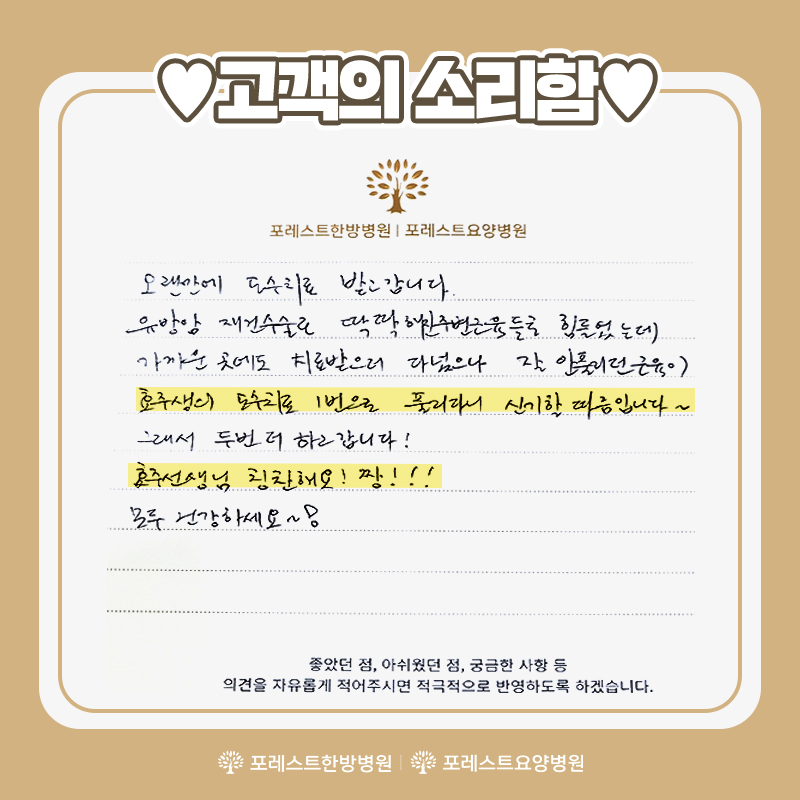 ♥고객의 소리함♥
포레스트한방병원 | 포레스트요양병원
오랜만에 도수치료 받고갑니다.
유방암 재건수술로 딱딱해진주변근육들로 힘들었는데
가까운 곳에도 치료받으러 다녔으나 잘 안풀리던근육이
효주쌤의 도수치료 1번으로 풀리다니 신기할 따름입니다~
그래서 두번 더 하고갑니다!
효주선생님 칭찬해요! 짱!!!
모두 건강하세요~
좋았던 점, 아쉬웠던 점, 궁금한 사항 등
의견을 자유롭게 적어주시면 적극적으로 반영하도록 하겠습니다.
포레스트한방병원 | 포레스트요양병원